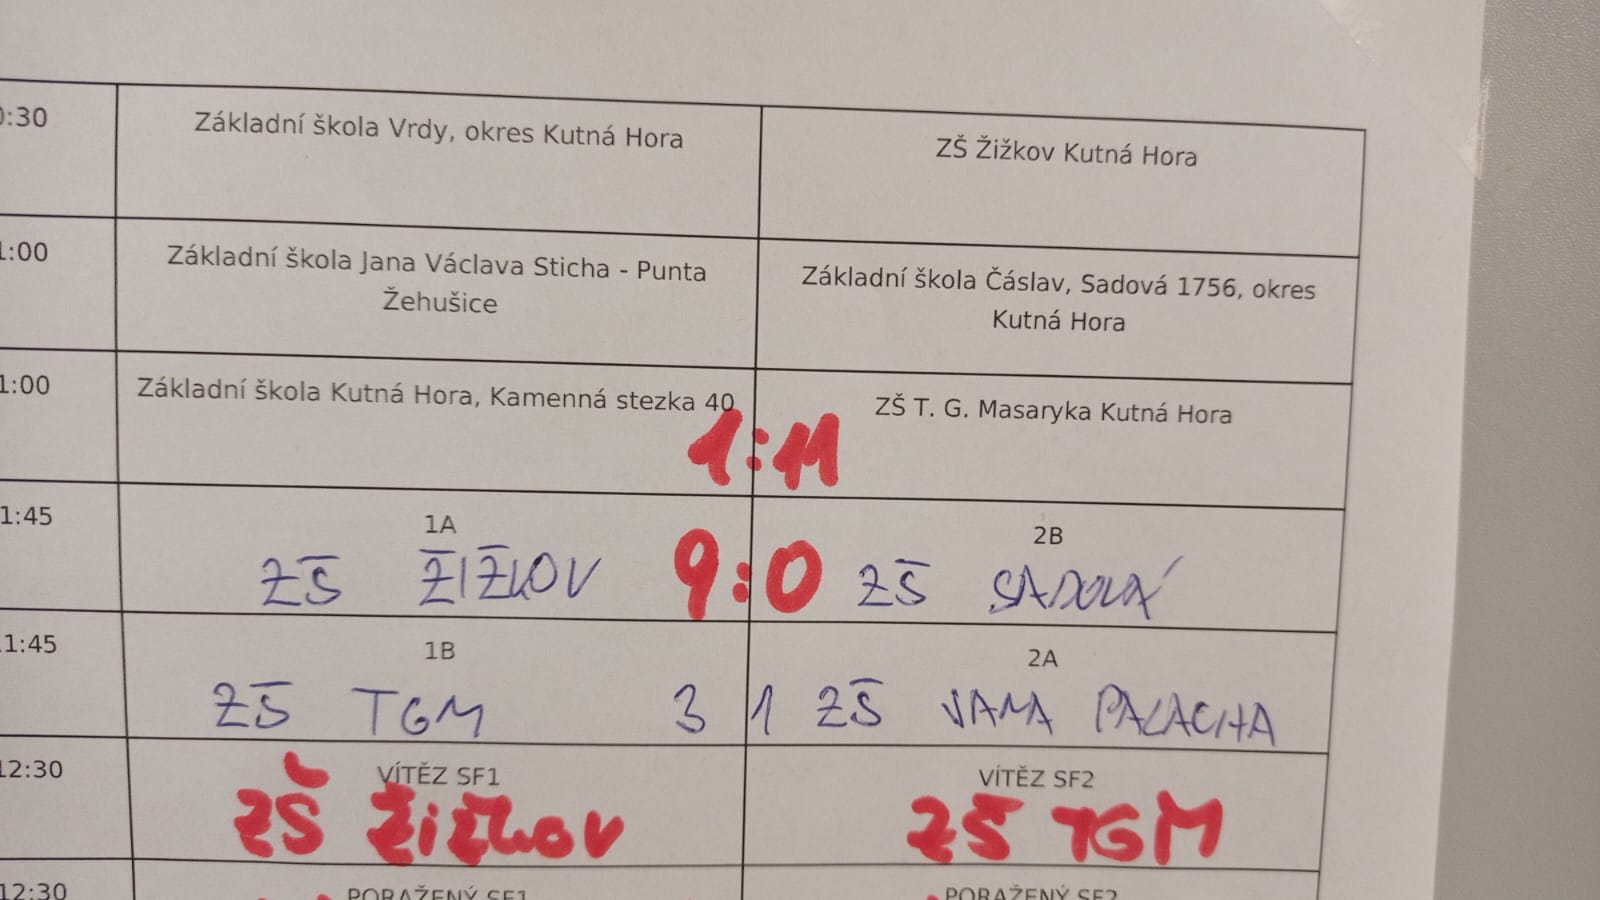 0:30 Základní škola Vrdy, okres Kutná Hora ZŠ Žižkov Kutná Hora
1:00 Základní škola Jana Václava Sticha - Punta Základní škola Čáslav, Sadová 1756, okres
Žehušice Kutná Hora
1:00 Základní škola Kutná Hora, Kamenná stezka 40 ZŠ T. G. Masaryka Kutná Hora
1:11
1:45 1A 2B
ZŠ ŽIŽKOV 9:0 ZŠ SADOVÁ
1:45 1B 2A
ZŠ TGM 3 1 ZŠ JANA PALACHA
12:30 VÍTĚZ SF1 VÍTĚZ SF2
ZŠ ŽiŽkov ZŠ TGM
12:30 PORAŽENÝ SF1 PORAŽENÝ SF2